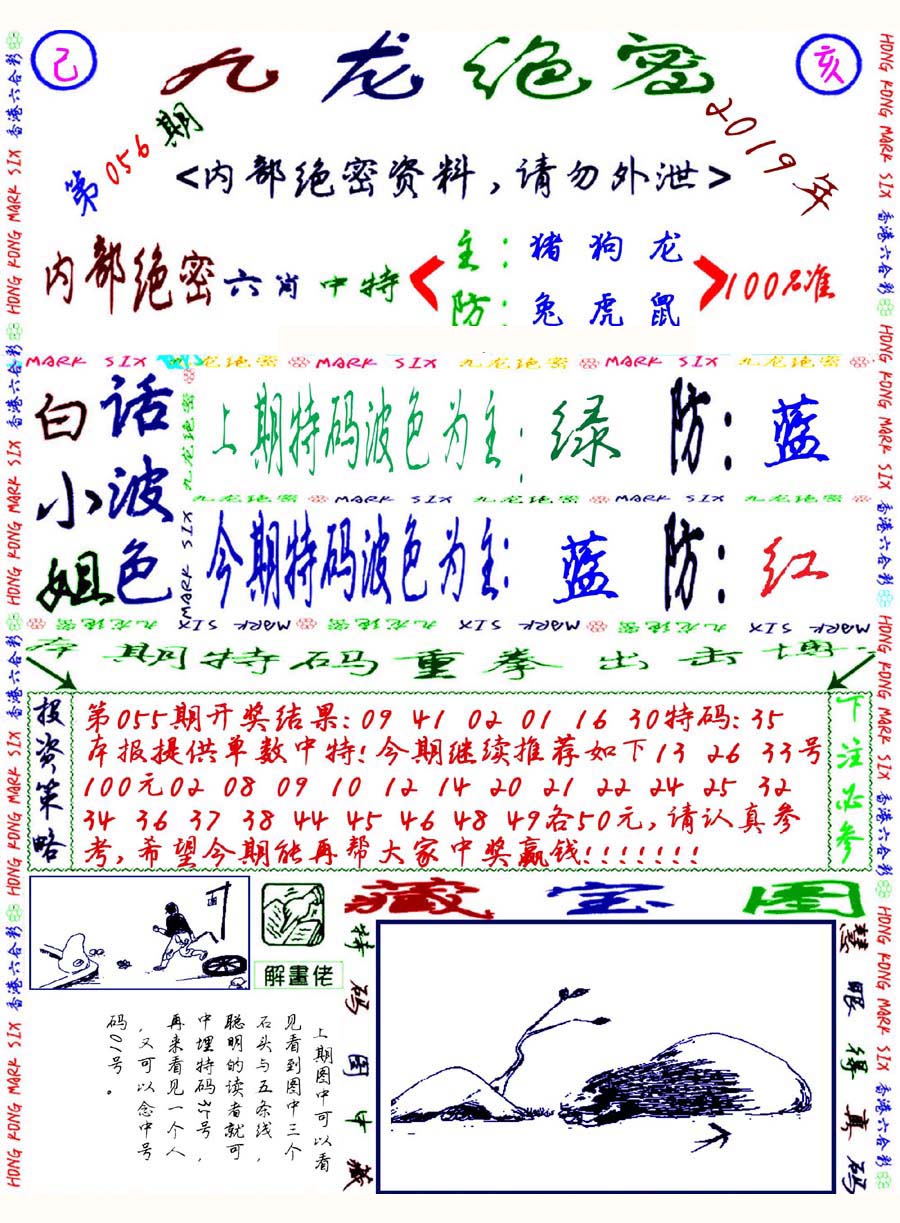 己
九龙绝密
亥
第056期
2019年
<内部绝密资料,请勿外泄>
内部绝密六肖中特
主:猪狗龙
防:兔虎鼠
100%准
MARK SIX 九龙绝密 MARK SIX 九龙绝密 MARK SIX 九龙绝密
白小姐
话波色
上期特码波色为主:绿 防:蓝
九龙绝密 MARK SIX 九龙绝密 MARK SIX 九龙绝密
今期特码波色为主:蓝 防:红
九龙绝密 MARK SIX 九龙绝密 MARK SIX 九龙绝密 MARK SIX
期特码重拳出击博
投资策略
第055期开奖结果:09 41 02 01 16 30特码:35
本报提供单数中特!今期继续推荐如下13 26 33号
100元02 08 09 10 12 14 20 21 22 24 25 32
34 36 37 38 44 45 46 48 49各50元,请认真参
考,希望今期能再帮大家中奖赢钱!!!!!!!
下注必参
解畫佬
藏宝图
特码图中藏
慧眼得真码
上期图中可以看
见看到图中三个
石头与五条线,
聪明的读者就可
中埋特码35号,
再来看见一个人
,又可以念中号
码01号。
香港六合彩 HONG KONG MARK SIX 香港六合彩 HONG KONG MARK SIX 香港六合彩 HONG KONG MARK SIX 香港六合彩 HONG KONG MARK SIX
HONG KONG MARK SIX 香港六合彩 HONG KONG MARK SIX 香港六合彩 HONG KONG MARK SIX 香港六合彩 HONG KONG MARK SIX 香港六合彩